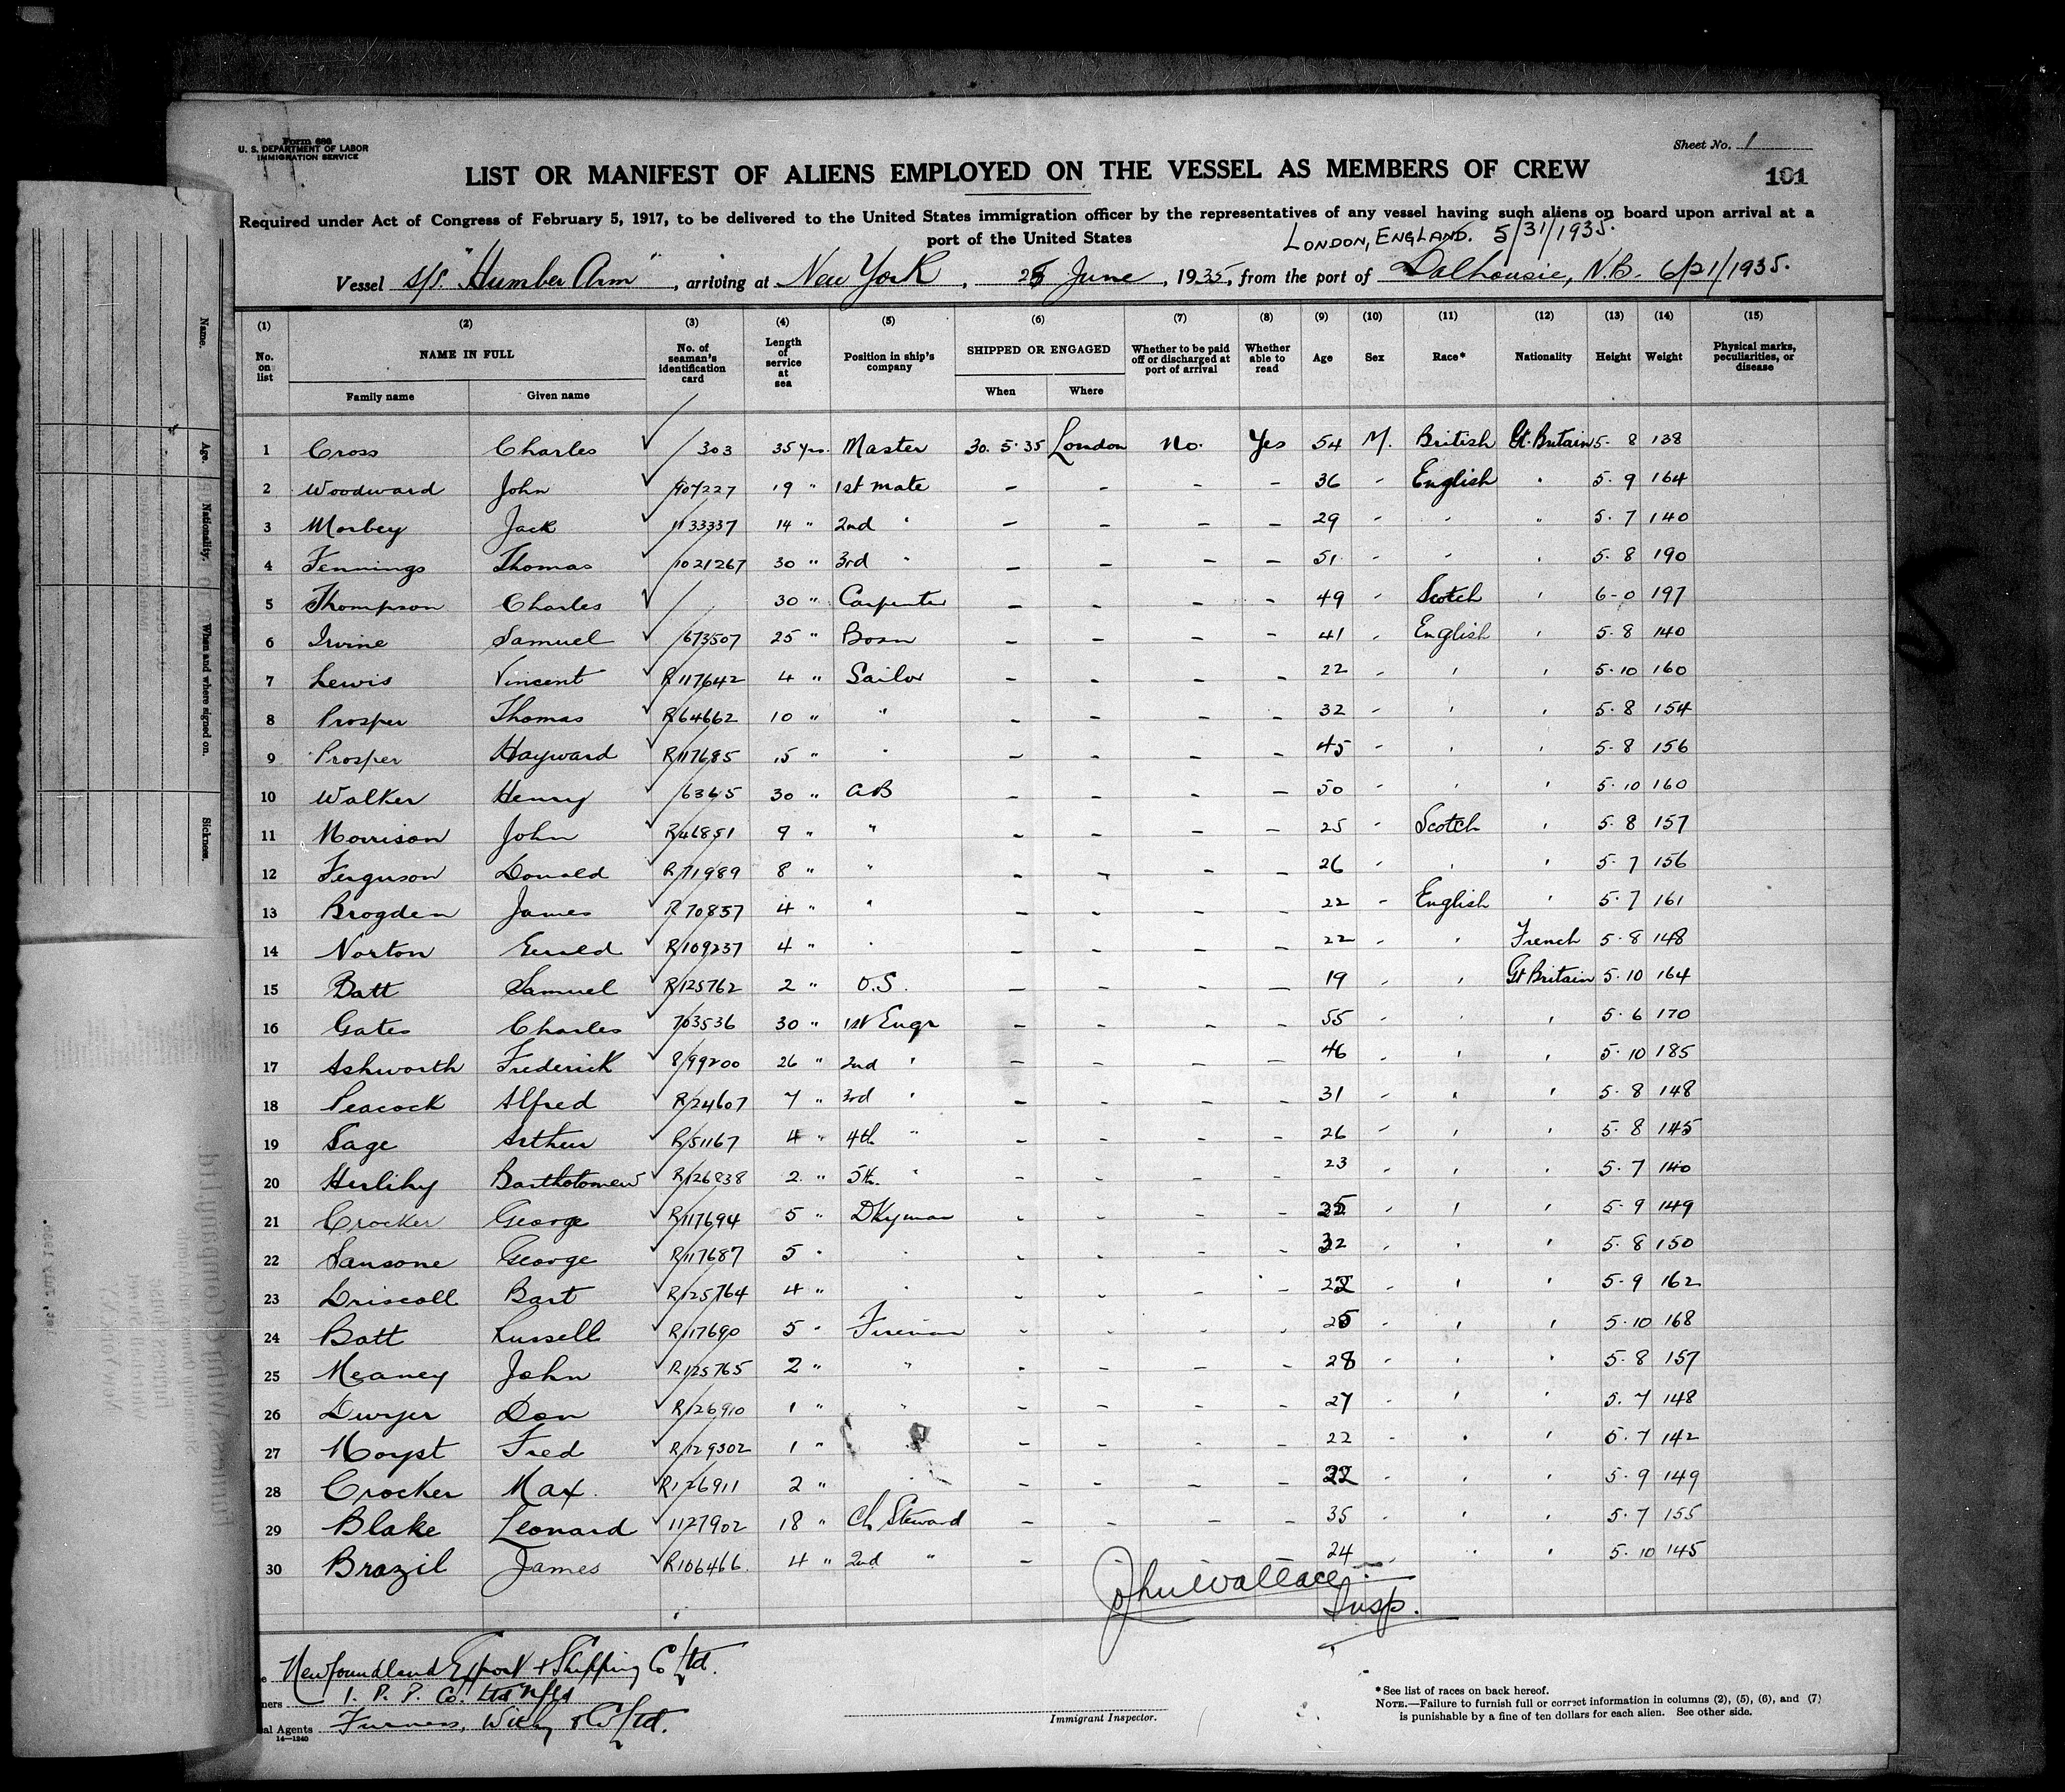 Form 680
U. S. DEPARTMENT OF LABOR
IMMIGRATION SERVICE
Sheet No. 1
LIST OR MANIFEST OF ALIENS EMPLOYED ON THE VESSEL AS MEMBERS OF CREW
101
Required under Act of Congress of February 5, 1917, to be delivered to the United States immigration officer by the representatives of any vessel having such aliens on board upon arrival at a
port of the United States
LONDON, ENGLAND. 5/31/1935.
Vessel S/S. "Humber Arm", arriving at New York, June, 1935, from the port of Dalhousie, N.B. 6/21/1935.
(1) (2) (3) (4) (5) (6) (7) (8) (9) (10) (11) (12) (13) (14) (15)
No. on list NAME IN FULL No. of seaman's identification card Length of service at sea Position in ship's company SHIPPED OR ENGAGED Whether to be paid off or discharged at port of arrival Whether able to read Age Sex Race* Nationality Height Weight Physical marks, peculiarities, or disease
Family name Given name When Where
1 Cross Charles 303 35 yrs. Master 30.5.35 London No. Yes 54 M. British Gt. Britain 5. 8 138
2 Woodward John 907227 19 " 1st mate - - - - 36 - English " 5. 9 164
3 Morbey Jack 1133337 14 " 2nd " - - - - 29 - " " 5. 7 140
4 Jennings Thomas 1021267 30 " 3rd " - - - - 51 - " " 5. 8 190
5 Thompson Charles 30 " Carpenter - - - - 49 - Scotch " 6-0 197
6 Irvine Samuel 673507 25 " Bosn - - - - 41 - English " 5. 8 140
7 Lewis Vincent R117642 4 " Sailor - - - - 22 - " " 5. 10 160
8 Prosper Thomas R64662 10 " " - - - - 32 - " " 5. 8 154
9 Prosper Hayward R117685 5 " " - - - - 45 - " " 5. 8 156
10 Walker Henry 6365 30 " AB - - - - 50 - " " 5. 10 160
11 Morrison John R46851 9 " " - - - - 25 - Scotch " 5. 8 157
12 Ferguson Donald R71989 8 " " - - - - 26 - " " 5. 7 156
13 Brogden James R70857 4 " " - - - - 22 - English " 5. 7 161
14 Norton Gerald R109237 4 " " - - - - 22 - " French 5. 8 148
15 Batt Samuel R125762 2 " O.S. - - - - 19 - " Gt Britain 5. 10 164
16 Gates Charles 703536 30 " 1st Engr - - - - 55 - " " 5. 6 170
17 Ashworth Frederick 899200 26 " 2nd " - - - - 46 - " " 5. 10 185
18 Peacock Alfred R24607 7 " 3rd " - - - - 31 - " " 5. 8 148
19 Sage Arthur R51167 4 " 4th " - - - - 26 - " " 5. 8 145
20 Herlihy Bartholomew R126838 2 " 5th " - - - - 23 - " " 5. 7 140
21 Crocker George R117694 5 " DKyman - - - - - " " 5. 9 149
22 Sansone George R117687 5 " " - - - - 32 - " " 5. 8 150
23 Driscoll Bart R125764 4 " " - - - - 22 - " " 5. 9 162
24 Batt Russell R117690 5 " Fireman - - - - - " " 5. 10 168
25 Meaney John R125765 2 " " - - - - 28 - " " 5. 8 157
26 Dwyer Don R126910 1 " " - - - - 27 - " " 5. 7 148
27 Moyst Fred R129302 1 " - - - - 22 - " " 5. 7 142
28 Crocker Max. R126911 2 " " - - - - 22 - " " 5. 9 149
29 Blake Leonard 1127902 18 " Ch Steward - - - - 35 - " " 5. 7 155
30 Brazil James R106466. 4 " 2nd " - 24 - " " 5. 10 145
John Wallace
Insp.
Newfoundland Export & Shipping Co Ltd.
I. P. P. Co. Ltd Nfld
Furness, Withy & Co Ltd.
al Agents
14—1240
Immigrant Inspector.
*See list of races on back hereof.
NOTE.—Failure to furnish full or correct information in columns (2), (5), (6), and (7)
is punishable by a fine of ten dollars for each alien. See other side.
Name.
Age.
Nationality.
When and where signed on.
Sickness.